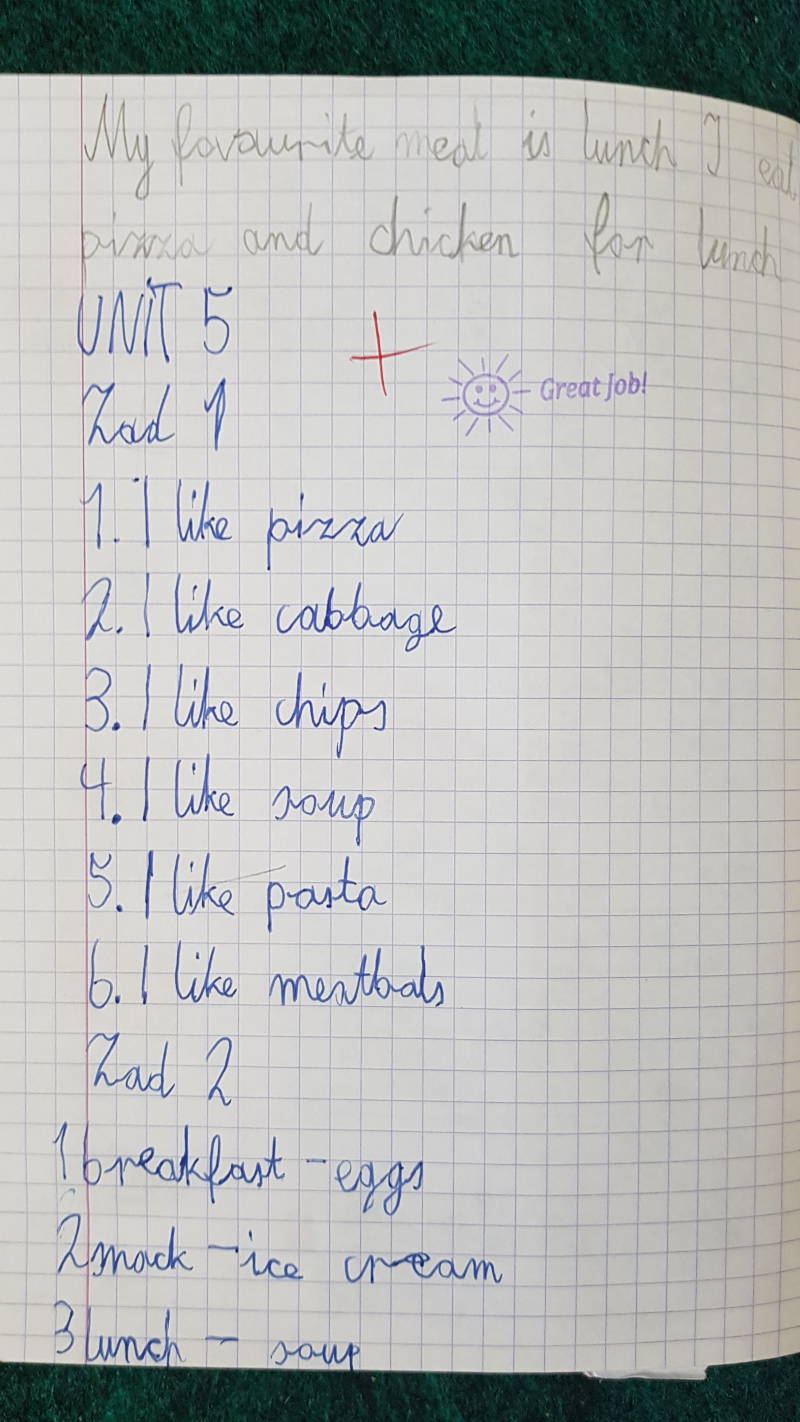 My favourite meal is lunch I eat
pizza and chicken for lunch
UNIT 5
+
Great Job!
Zad 1
1. I like pizza
2. I like cabbage
3. I like chips
4. I like soup
5. I like pasta
6. I like meatbals
Zad 2
1 breakfast - eggs
2 snack - ice cream
3 lunch - soup